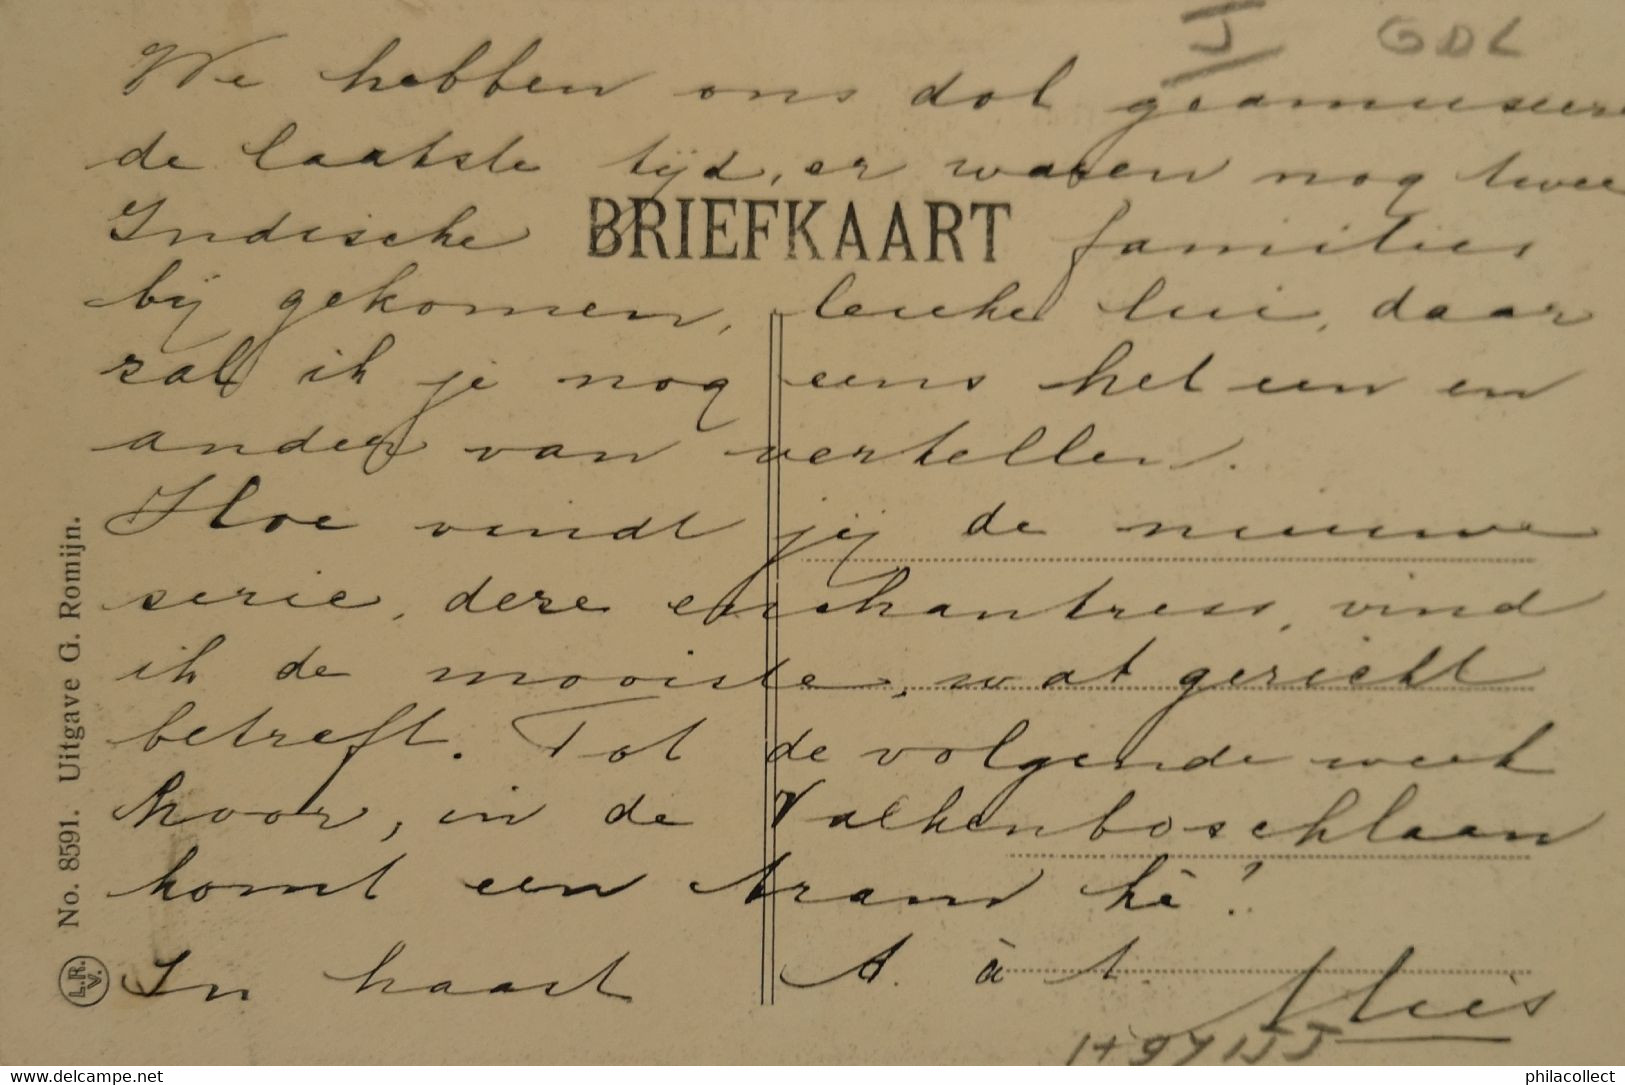 I GDL
We hebben ons dol geamuseer
de laatste tijd, er waren nog twee
Indische families
BRIEFKAART
bij gekomen, leuke lui, daar
zal ik je nog eens het een en
ander van vertellen.
Hoe vindt jij de nieuwe
serie, deze enchantress, vind
ik de mooiste, wat gezicht
betreft. Tot de volgende week
hoor, in de Valkenboschlaan
komt een tram hè?
In haast A. à t.
No. 8591. Uitgave G. Romijn.
L.R.V.
delcampe.net
philacollect